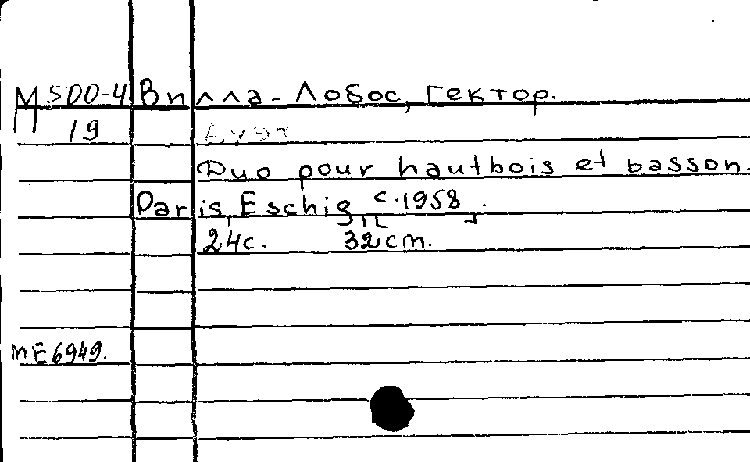 М 500-4 Вилла-Лобос, Гектор.
19
Duo pour hautbois et basson.
Paris, Eschig c.1958.
24c. 32cm.
ME6949.